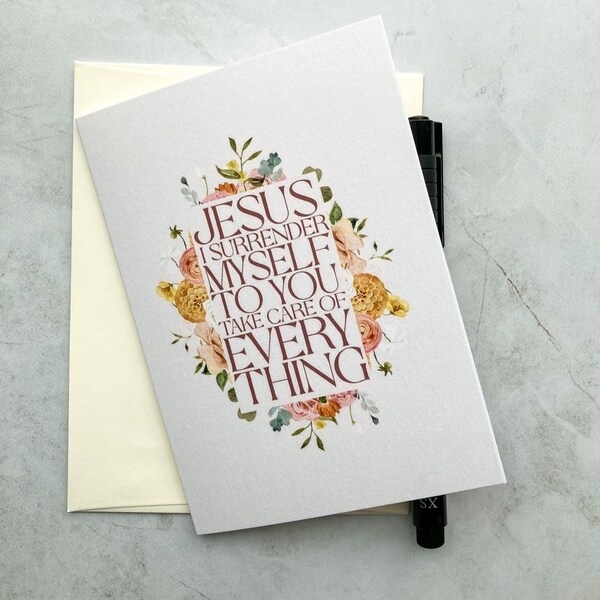 JESUS
I SURRENDER
MYSELF
TO YOU
TAKE CARE OF
EVERY
THING
SX